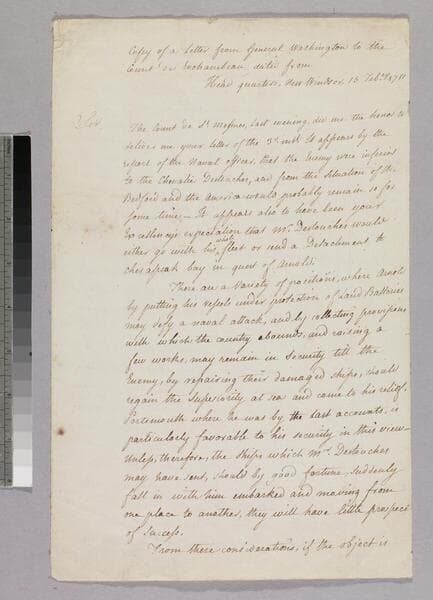 Copy of a Letter from General Washington to the
Count de Rochambeau dated from
Head quarters, New Windsor 15 Feb.
The Count de St. Mesmes, last evening, did me the honor to
deliver me your letter of the 3d. inst. It appears by the
report of the Naval officer, that the Enemy were inferior
to the Chevalier Destouches, and from the situation of the
Bedford and the America would probably remain so for
some time, — It appears also to have been your
Excellency's expectation that Mr. Destouches would
either go with his whole fleet or send a Detachment to
chesapeak bay in quest of Arnold.
There are a variety of positions, where Arnold
by putting his vessels under protection of Land Batteries
may defy a naval attack, and by collecting provisions
with which the country abounds, and raising a
few works, may remain in security till the
Enemy, by repairing their damaged ships, should
regain the superiority at sea and come to his relief.
Portsmouth where he was by the last accounts, is
particularly favorable to his security in this view.
Unless, therefore, the ships which Mr. Destouches
may have sent, should by good fortune, suddenly
fall in with him embarked and moving from
one place to another, they will have little prospect
of success.
From these considerations, if the object is